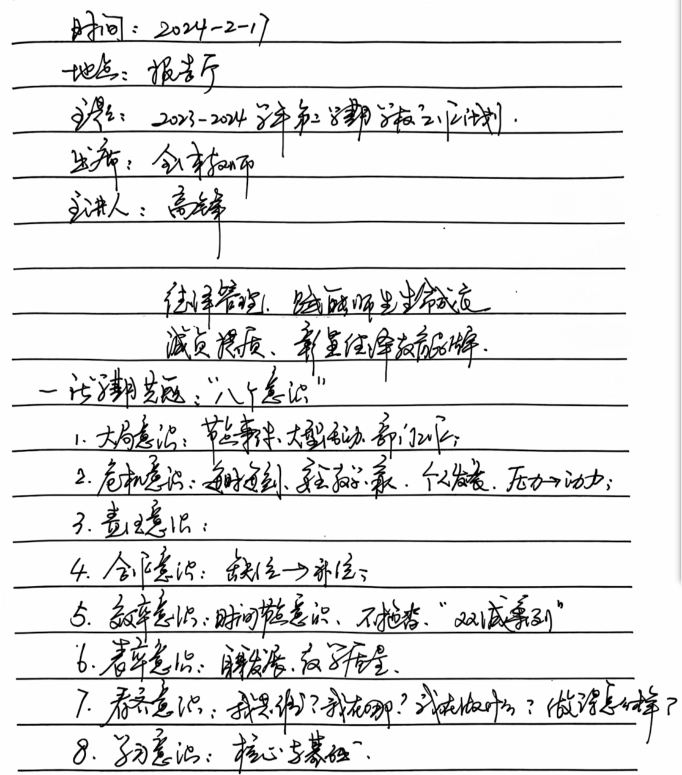 时间：2024-2-17
地点：报告厅
主题：2023-2024学年第二学期学校工作计划.
出席：全体教师
主讲人：高锋
佳泽管理、赋能师生生命成长
减负提质、彰显佳泽教育品牌.
一 新学期共勉："八个意识"
1. 大局意识：节点事件、大型活动、部门工作；
2. 危机意识：安全教学、个人发展、压力→动力；
3. 责任意识：
4. 合作意识：缺位→补位；
5. 效率意识：时间节点意识、不拖沓、"双减系列"
6. 表率意识：发展、教学质量.
7. 意识：我是谁？我在哪？我在做什么？做得怎么样？
8. 学习意识：核心与基础.